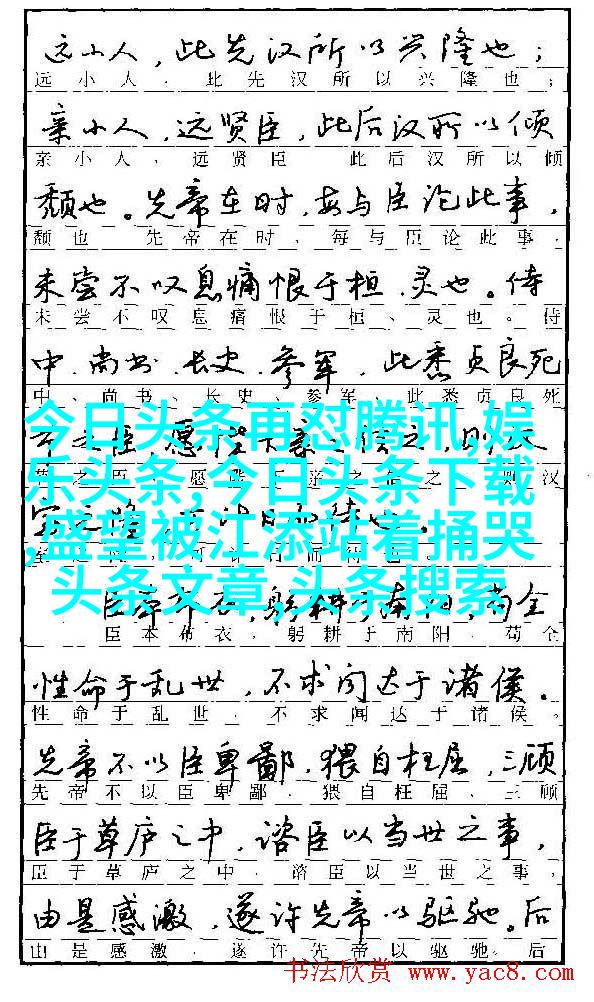 远小人，此先汉所以兴隆也；
远小人．此先汉所以兴隆也；
亲小人，远贤臣，此后汉所以倾
亲小人、远贤臣 此后汉所以倾
颓也。先帝在时，每与臣论此事，
颓也 先帝在时，每与臣论此事，
未尝不叹息痛恨于桓、灵也。侍
未尝不叹息痛恨于桓、灵也。侍
中、尚书、长史、参军，此悉贞良死
中、尚书、长史、参军、此悉贞良死
今日头条再怼腾讯,娱
乐头条,今日头条下载
,盛望被江添站着捅哭
头条文章,头条搜索
臣，愿陛
之臣 愿 之 之 则汉
臣本布衣，躬耕于南阳，苟全
臣本布衣，躬耕于南阳，苟全
性命于乱世，不求闻达于诸侯。
性命于乱世，不求闻达于诸侯。
先帝不以臣卑鄙，猥自枉屈，三顾
先帝不以臣卑鄙，猥自枉屈、三顾
臣于草庐之中，谘臣以当世之事，
臣于草庐之中，谘臣以当世之事，
由是感激，遂许先帝以驱驰。后
由是感激，遂许先帝以驱驰。后
书法欣赏 www.yac8.com